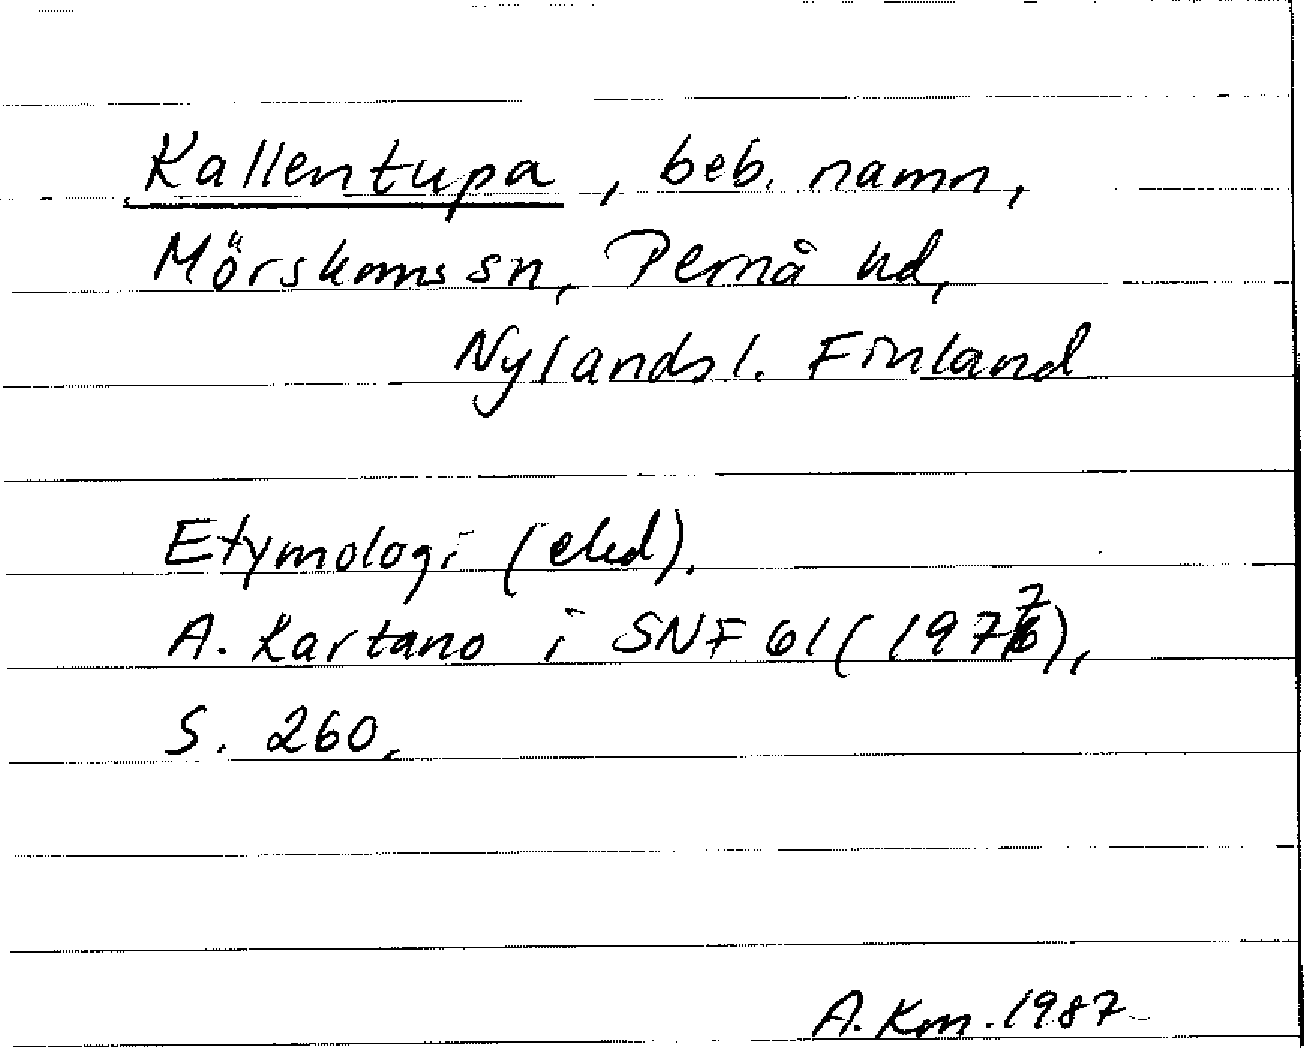 Kallentupa, beb. namn,
Mörskoms sn, Pernå hd,
Nylands l. Finland
Etymologi (eled).
A. Kartano i SNF 61 (1977),
S. 260.
A. Km. 1987